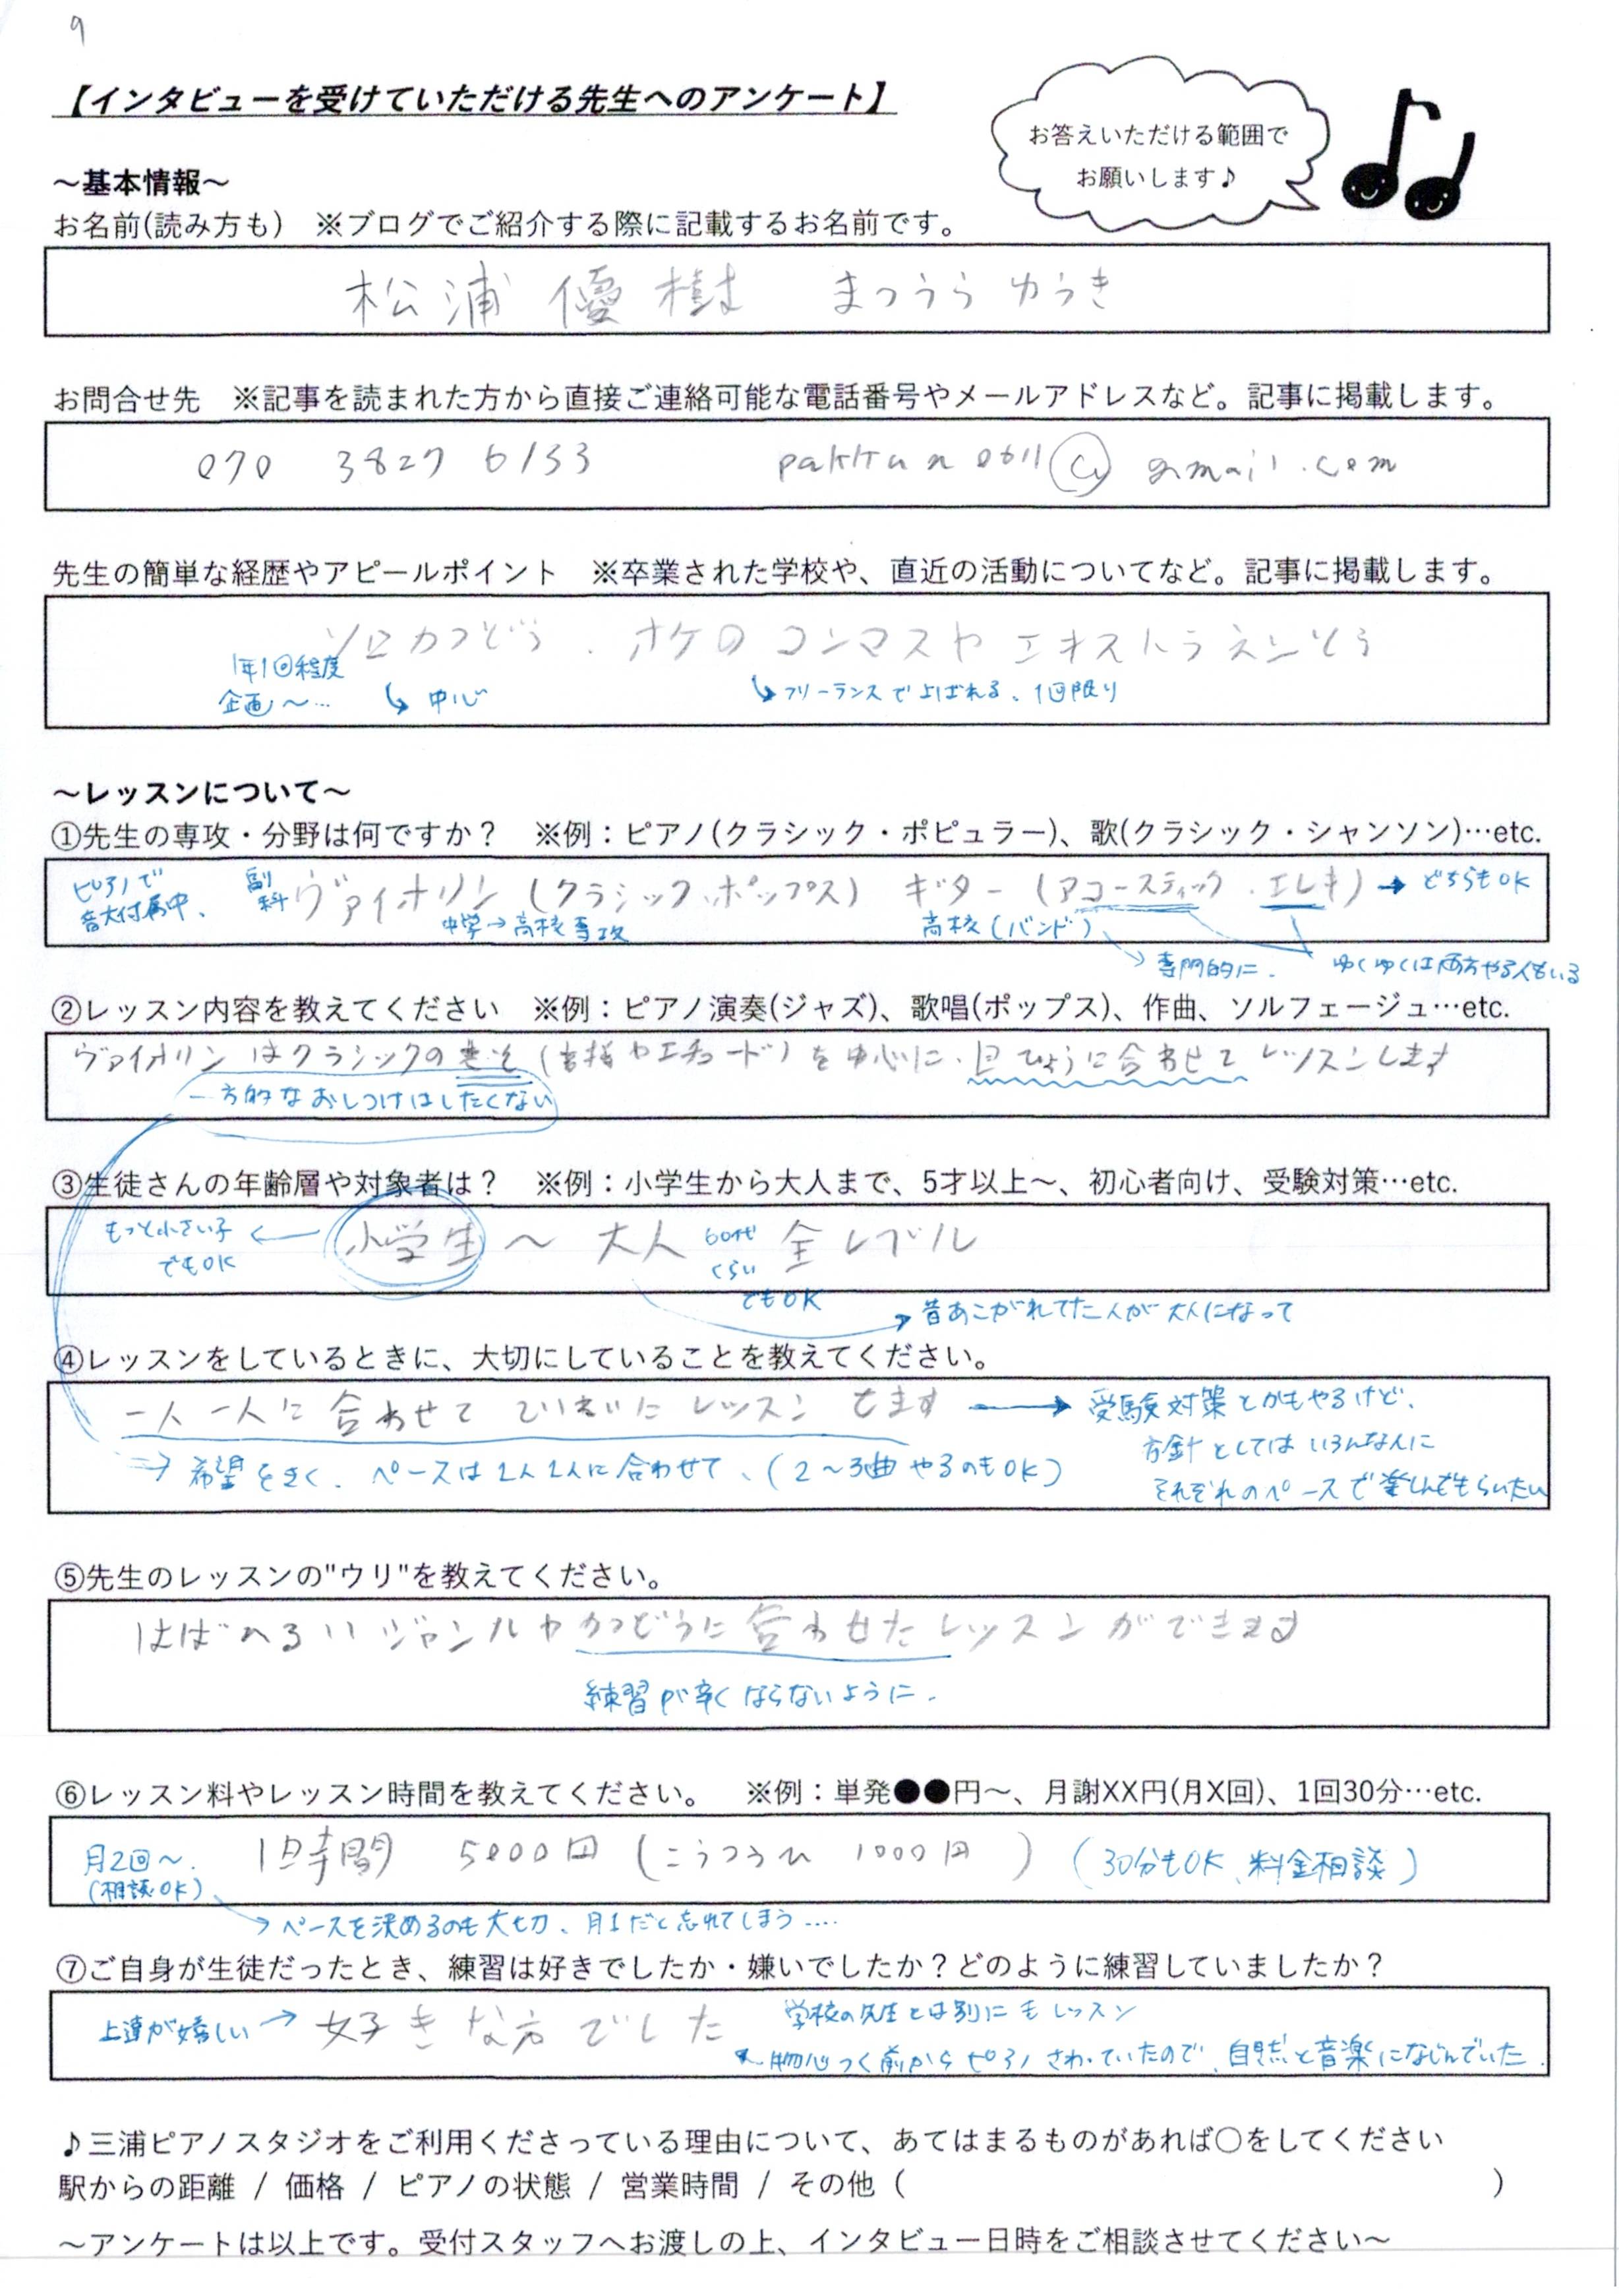 9
【インタビューを受けていただける先生へのアンケート】
お答えいただける範囲で
お願いします♪
～基本情報～
お名前(読み方も)　※ブログでご紹介する際に記載するお名前です。
松浦 優樹　まつうら ゆうき
お問合せ先　※記事を読まれた方から直接ご連絡可能な電話番号やメールアドレスなど。記事に掲載します。
070 3827 6133　pakkun0611@gmail.com
先生の簡単な経歴やアピールポイント　※卒業された学校や、直近の活動についてなど。記事に掲載します。
ソロかつどう．オケのコンマスやエキストラえんそう
1年1回程度
企画～…　↳中心　↳フリーランスでよばれる、1回限り
～レッスンについて～
①先生の専攻・分野は何ですか？　※例：ピアノ(クラシック・ポピュラー)、歌(クラシック・シャンソン)…etc.
ピアノで
音大付属中、
副科
ヴァイオリン（クラシック、ポップス）　ギター（アコースティック．エレキ）→どちらもOK
中学→高校専攻　高校（バンド）
専門的に．　ゆくゆくは両方やる人もいる
②レッスン内容を教えてください　※例：ピアノ演奏(ジャズ)、歌唱(ポップス)、作曲、ソルフェージュ…etc.
ヴァイオリンはクラシックのきそ（音階やエチュード）を中心に、目ひょうに合わせてレッスンします
一方的なおしつけはしたくない
③生徒さんの年齢層や対象者は？　※例：小学生から大人まで、5才以上～、初心者向け、受験対策…etc.
もっと小さい子
でもOK
←小学生～大人　全レベル
60代
くらい
でもOK
→昔あこがれてた人が大人になって
④レッスンをしているときに、大切にしていることを教えてください。
一人一人に合わせてていねいにレッスンしてます→受験対策とかもやるけど、
方針としてはいろんな人に
それぞれのペースで楽しんでもらいたい
⇒希望をきく．ペースは1人1人に合わせて、（2～3曲やるのもOK）
⑤先生のレッスンの"ウリ"を教えてください。
はばひろいジャンルやかつどうに合わせたレッスンができます
練習が辛くならないように．
⑥レッスン料やレッスン時間を教えてください。　※例：単発●●円～、月謝XX円(月X回)、1回30分…etc.
月2回～．
（相談OK）
1時間　5000円（こうつうひ 1000円）（30分もOK、料金相談）
→ペースを決めるのも大切、月1だと忘れてしまう….
⑦ご自身が生徒だったとき、練習は好きでしたか・嫌いでしたか？どのように練習していましたか？
上達が嬉しい→好きな方でした
学校の先生とは別にもレッスン
物心つく前からピアノさわっていたので、自然と音楽になじんでいた．
♪三浦ピアノスタジオをご利用くださっている理由について、あてはまるものがあれば○をしてください
駅からの距離 / 価格 / ピアノの状態 / 営業時間 / その他（　　　）
～アンケートは以上です。受付スタッフへお渡しの上、インタビュー日時をご相談させてください～